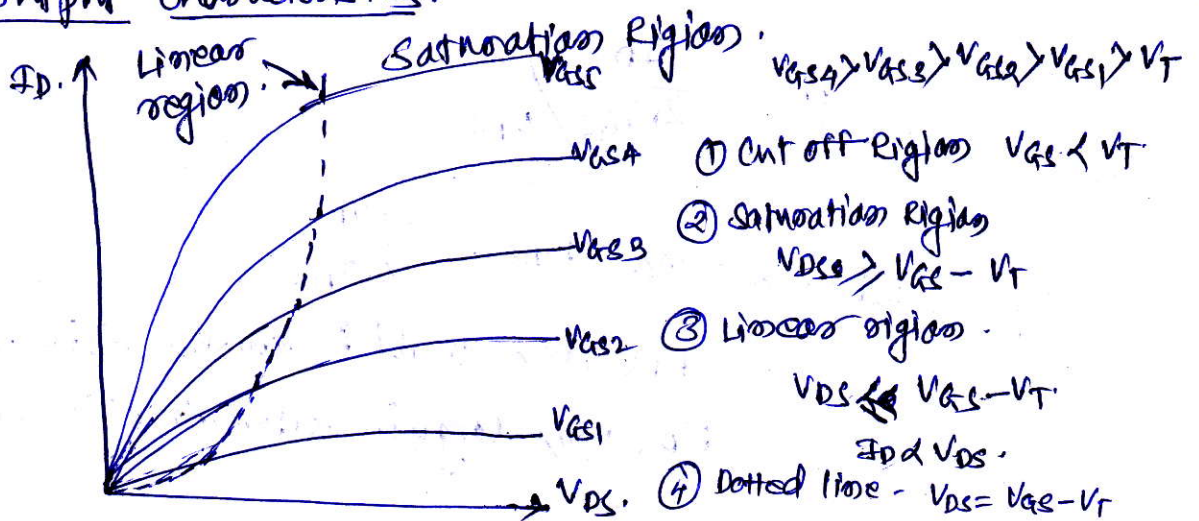 Output Characteristics.
I_D.
Linear region.
Saturation Rigion.
V_GS5
V_GS4 > V_GS3 > V_GS2 > V_GS1 > V_T
V_GS4
① Cut off Rigion V_GS < V_T
② Saturation Rigion
V_GS3
V_DSS ≥ V_GS - V_T
V_GS2
③ Linear rigion.
V_DS << V_GS - V_T.
V_GS1
I_D ∝ V_DS.
V_DS.
④ Dotted line - V_DS = V_GS - V_T